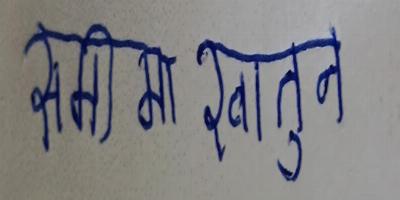 समीमा खातुन